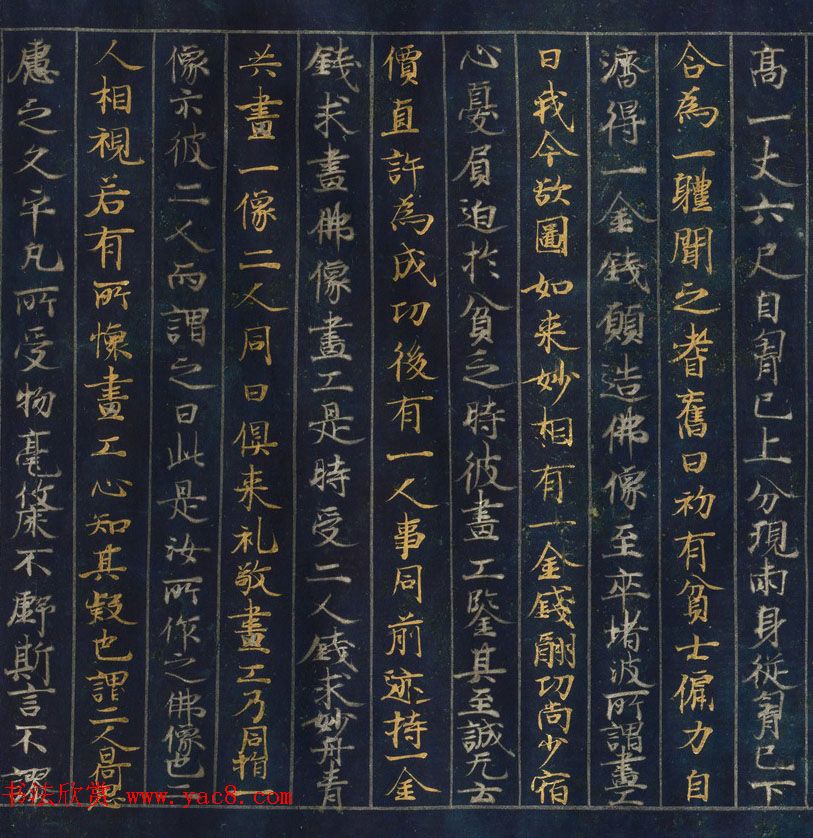 高一丈六尺自胷已上分現兩身從胷已下
合為一體聞之耆舊曰初有貧士傭力自
濟得一金錢願造佛像至窣堵波所謂畫工
曰我今欲圖如来妙相有一金錢酬功尚少宿
心憂負迫於貧乏時彼畫工鑒其至誠无云
價直許為成功後有一人事同前迹持一金
錢求畫佛像畫工是時受二人錢求妙丹青
共畫一像二人同日俱来礼敬畫工乃同指一
像示彼二人而謂之曰此是汝所作之佛像也二
人相視若有所懷畫工心知其疑也謂二人曰何思
慮之久乎凡所受物毫釐不虧斯言不謬
书法欣赏 www.yac8.com